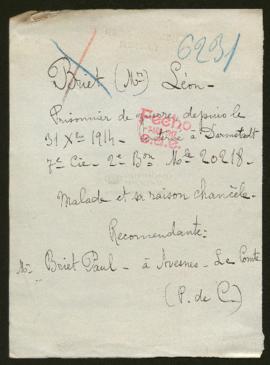 6231
Briet (Mr) Léon -
Prisonnier de guerre depuis le
31 Xbre 1914 - à Darmstadt
7e Cie - 2e Bon Mle 20218 -
Malade et sa raison chancèle -
Recommandante :
Me Briet Paul - à Avesnes - Le Comte
(P. de C.)